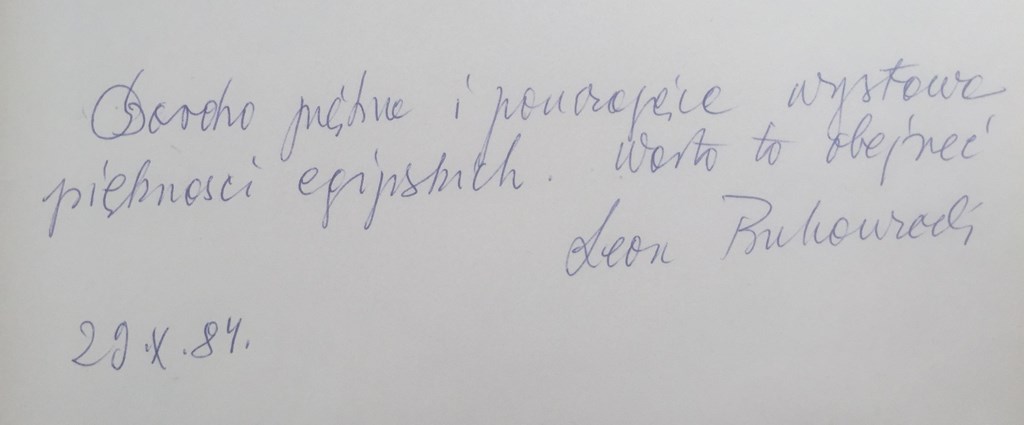 Bardzo piękna i pouczająca wystawa
piękności egipskich. Warto to obejrzeć
Leon
29.X.84.